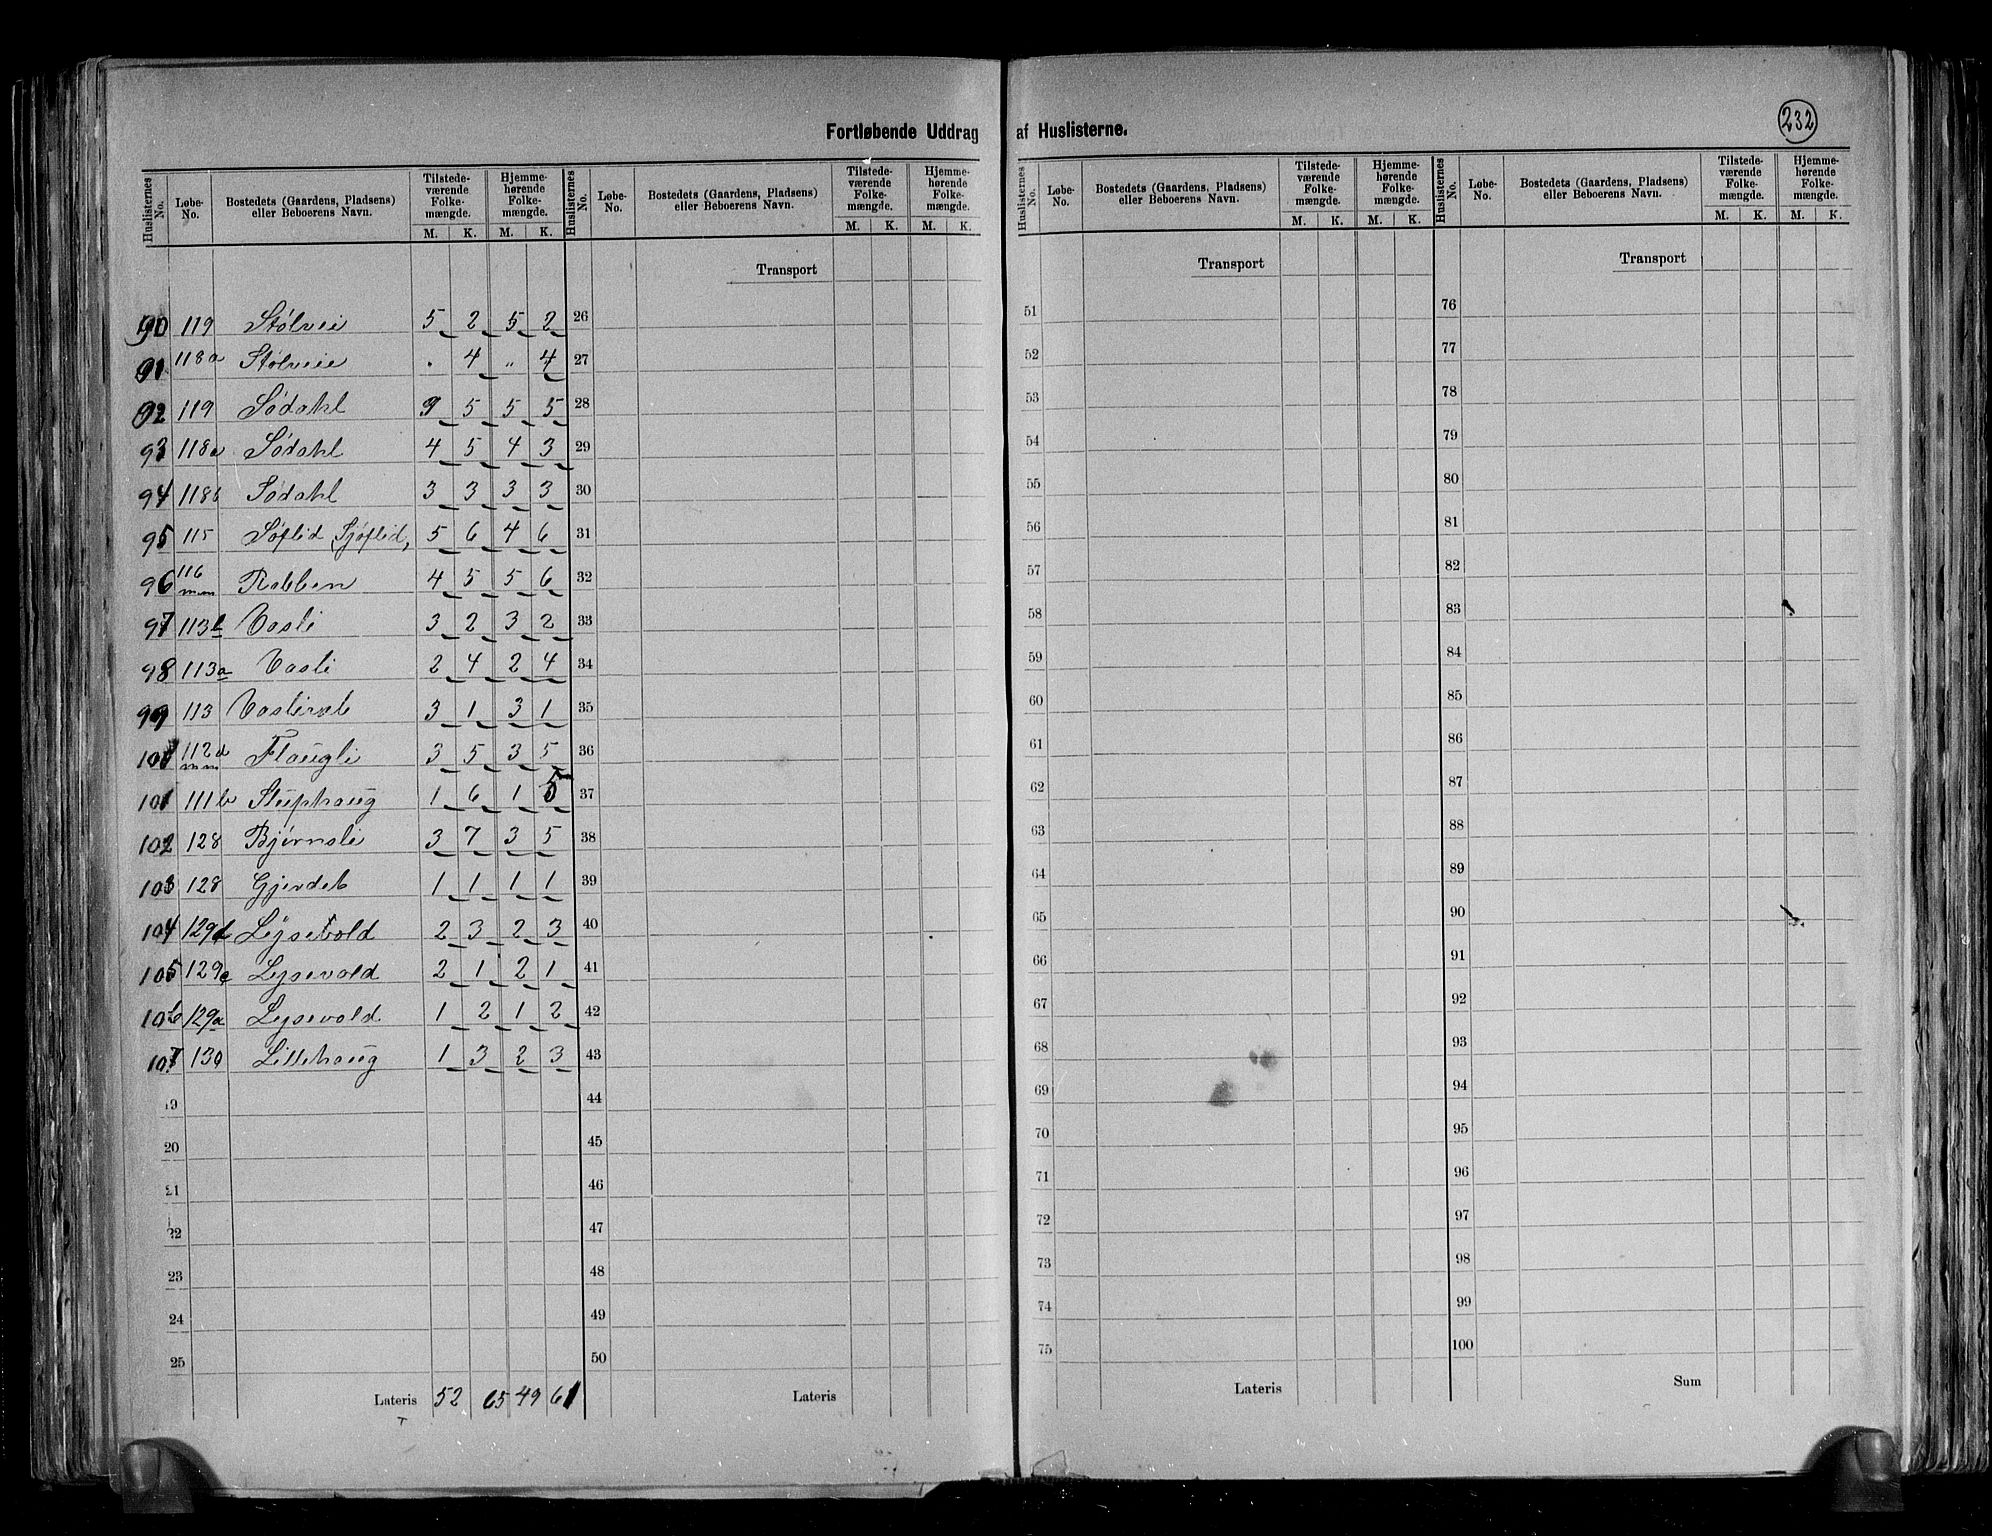 Fortløbende Uddrag af Huslisterne.
232
Huslisternes No. Løbe-No. Bostedets (Gaardens, Pladsens) eller Beboerens Navn. Tilstedeværende Folkemængde. M. K. Hjemmehørende Folkemængde. M. K.
Huslisternes No. Løbe-No. Bostedets (Gaardens, Pladsens) eller Beboerens Navn. Tilstedeværende Folkemængde. M. K. Hjemmehørende Folkemængde. M. K.
Huslisternes No. Løbe-No. Bostedets (Gaardens, Pladsens) eller Beboerens Navn. Tilstedeværende Folkemængde. M. K. Hjemmehørende Folkemængde. M. K.
Huslisternes No. Løbe-No. Bostedets (Gaardens, Pladsens) eller Beboerens Navn. Tilstedeværende Folkemængde. M. K. Hjemmehørende Folkemængde. M. K.
Transport Transport Transport
90 119 Stølveie 5 2 5 2 26 51 76
91 118a Stølveie . 4 „ 4 27 52 77
92 119 Sødahl 9 5 5 5 28 53 78
93 118a Sødahl 4 5 4 3 29 54 79
94 118b Sødahl 3 3 3 3 30 55 80
95 115 Søflid (Sjøflid) 5 6 4 6 31 56 81
96 116 m.m Rabben 4 5 5 6 32 57 82
97 113b Vasli 3 2 3 2 33 58 83
98 113a Vasli 2 4 2 4 34 59 84
99 113 3 1 3 1 35 60 85
100 112d m.m Flaugli 3 5 3 5 36 61 86
101 111b Stuphaug 1 6 1 5 37 62 87
102 128 Bjørnsli 3 7 3 5 38 63 88
103 128 Gjerdet 1 1 1 1 39 64 89
104 129d Lysevold 2 3 2 3 40 65 90
105 129c Lysevold 2 1 2 1 41 66 91
106 129a Lysevold 1 2 1 2 42 67 92
107 130 Lillehaug 1 3 2 3 43 68 93
19 44 69 94
20 45 70 95
21 46 71 96
22 47 72 97
23 48 73 98
24 49 74 99
25 50 75 100
Lateris 52 65 49 61 Lateris Lateris Sum